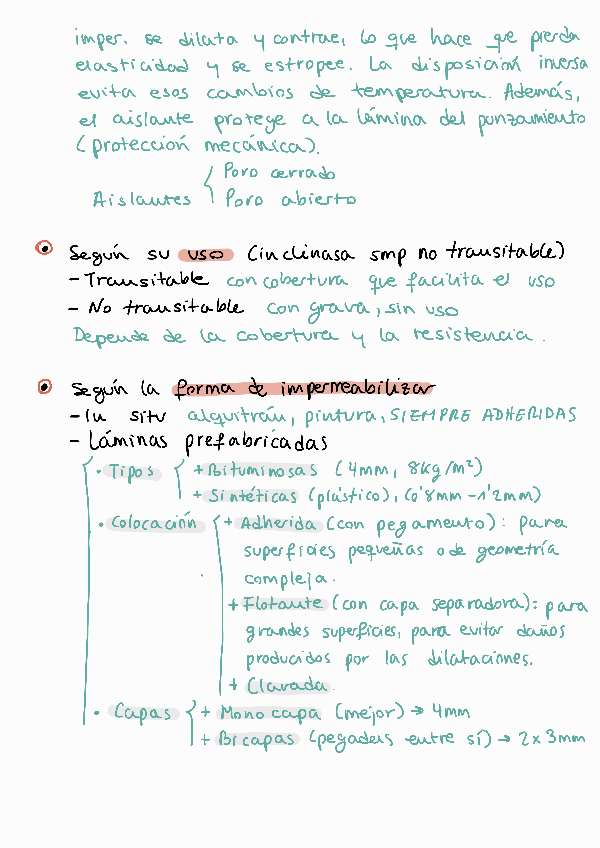 imper. se dilata y contrae, lo que hace que pierda
elasticidad y se estropee. La disposición inversa
evita esos cambios de temperatura. Además,
el aislante protege a la lámina del punzamiento
(protección mecánica).
Aislantes { Poro cerrado
Poro abierto
Según su uso (inclinasa smp no transitable)
- Transitable con cobertura que facilita el uso
- No transitable con grava, sin uso
Depende de la cobertura y la resistencia.
Según la forma de impermeabilizar
- In situ alquitrán, pintura, SIEMPRE ADHERIDAS
- Láminas prefabricadas
· Tipos { + Bituminosas (4mm, 8kg/m²)
+ Sintéticas (plástico), (0'8mm - 1'2mm)
· Colocación { + Adherida (con pegamento): para
superficies pequeñas o de geometría
compleja.
+ Flotante (con capa separadora): para
grandes superficies, para evitar daños
producidos por las dilataciones.
+ Clavada.
· Capas { + Mono capa (mejor) → 4mm
+ Bicapas (pegaders entre sí) → 2 x 3mm